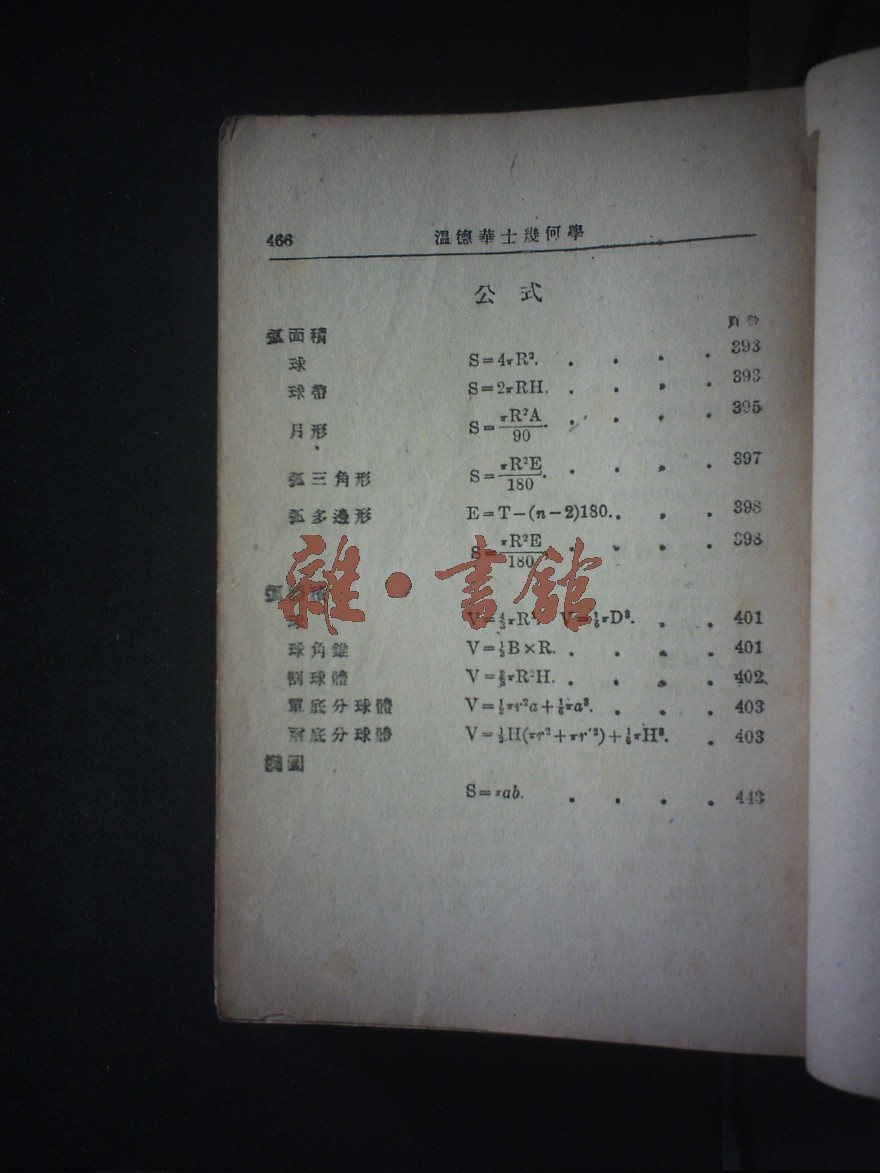 466 溫德華士幾何學
公式
頁數
弧面積
球 S=4πR². . . . . 393
球帶 S=2πRH. . . . . 393
月形 S=πR²A/90. . . . . 395
弧三角形 S=πR²E/180. . . . . 397
弧多邊形 E=T-(n-2)180. . . . 398
S=πR²E/180. . . . . 398
雜·書館
球 V=4/3πR³. V=1/6πD³. . . 401
球角錐 V=1/3B×R. . . . . 401
割球體 V=2/3πR²H. . . . . 402
單底分球體 V=1/2πr²a+1/6πa³. . . . 403
兩底分球體 V=1/2H(πr²+πr′²)+1/6πH³. . 403
S=πab. . . . . 443